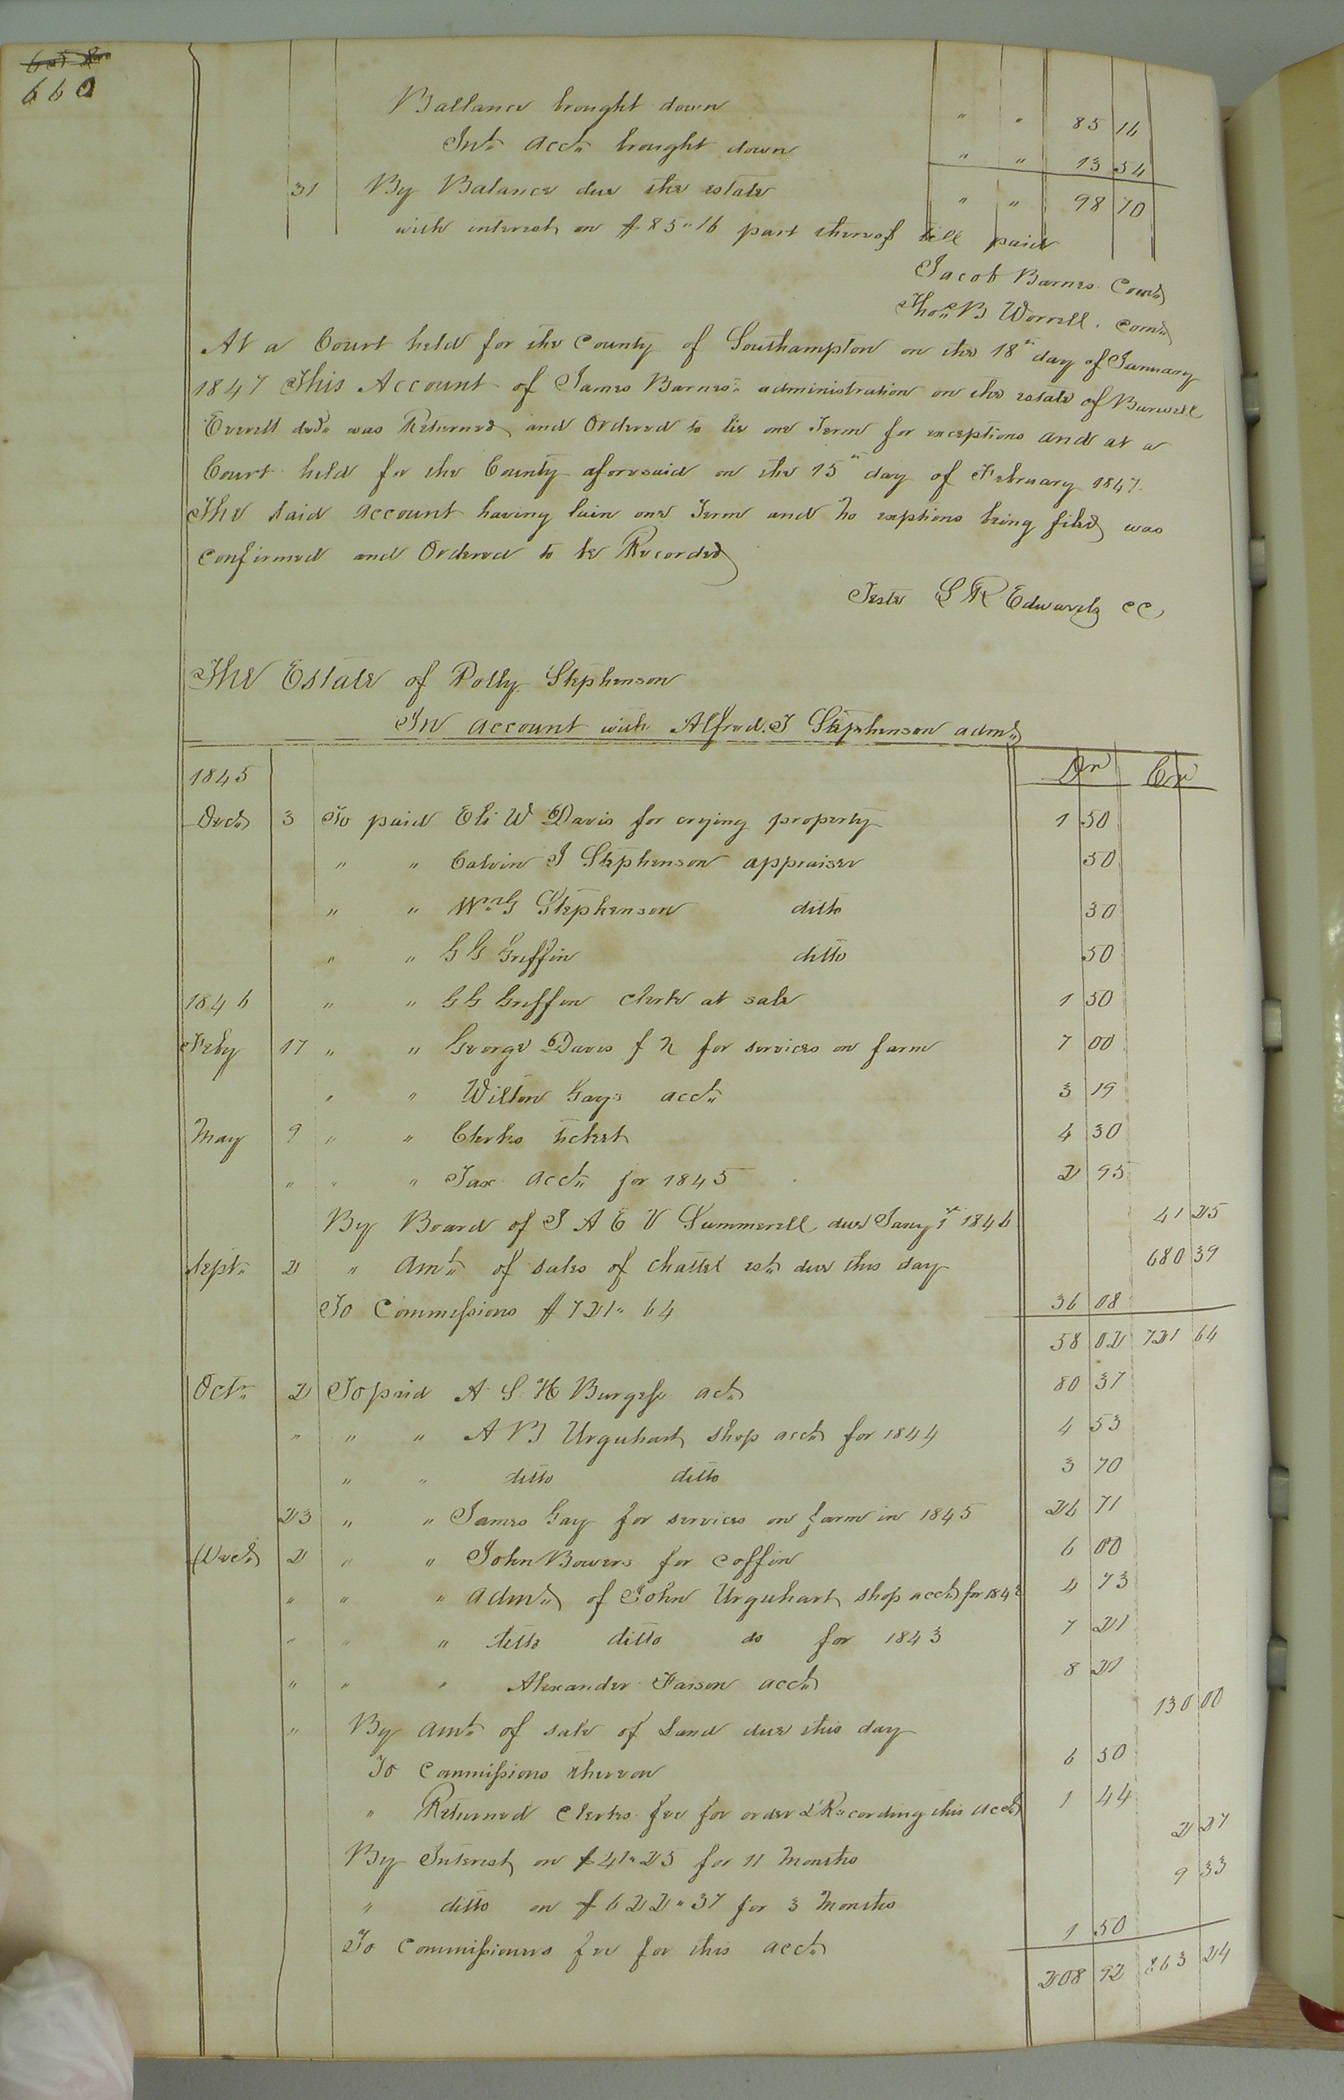 660
Ballance brought down " " 85 16
Int. acct. brought down " " 13 54
31 By Balance due the estate " " 98 70
with interest on $85"16 part thereof till paid
Jacob Barnes Comr
Thos. B Worrell. comr
At a Court held for the County of Southampton on the 18th day of January
1847 This Account of James Barnes administration on the estate of Burwell
Everett decd. was Returned and Ordered to lie one Term for exceptions and at a
Court held for the County aforesaid on the 15th day of February 1847.
The said account having lain one Term and no exptions being filed was
confirmed and Ordered to be Recorded
Teste L R Edwards CC
The Estate of Polly Stephenson
In account with Alfred. J Stephenson admr
1845 Dr Cr
Decr 3 To paid Eli W Davis for crying property 1 50
" " Calvin J Stephenson appraiser 50
" " Wm G Stephenson ditto 50
" " G G Griffin ditto 50
1846 " " G G Griffin clerk at sale 1 50
Feby 17 " " George Davis f n for services on farm 7 00
" " Wilton Gays acct. 3 19
May 9 " " Clerks ticket 4 30
" " " Tax acct. for 1845 2 95
By Board of J A E V Summerell due Jany 1st 1846 41 25
Sept. 2 " Amt. of sales of chattel est. due this day 680 39
To Commissions $721" 64 36 08
58 02 721 64
Octr. 2 To paid A S H Burgess act. 80 37
" " " A B Urquhart shop acct for 1844 4 53
" " ditto ditto 3 70
23 " " James Gay for services on farm in 1845 26 71
Decr 2 " " John Bowers for coffin 6 00
" " " admr of John Urquhart shop acct for 1842 4 73
" " " ditto ditto do for 1843 7 21
" " " Alexander Faison acct. 8 21
" By amt. of sale of Land due this day 130 00
To Commissions thereon 6 50
" Returned Clerks fee for order & Recording this acct 1 44
By Interest on $41"25 for 11 months 2 27
" ditto on $622"37 for 3 Months 9 33
To commissioners fee for this acct. 1 50
208 92 863 24